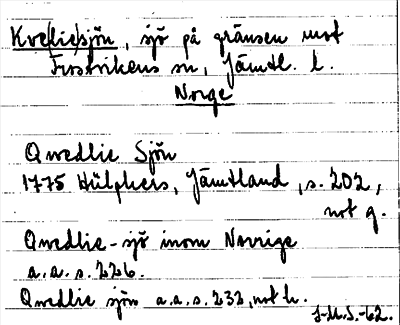 Kve(lie)sjön, sjö på gränsen mot
Frostvikens sn, Jämtl. l.
Norge
Qwedlie Sjön
1775 Hülphers, Jämtland, s. 202,
not g.
Qwedlie-sjö inom Norrige
a.a. s. 226.
Qwedlie sjön a.a. s. 232, not h.
J-M.S.-62.